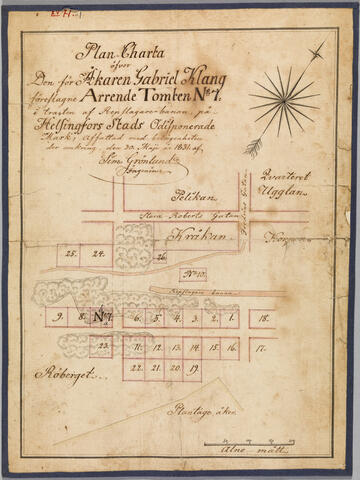 Plan Charta
öfver
Den för Åkaren Gabriel Klang
föreslagne Arrende Tomten No 7.
i trakten af Repslagare-banan, på
Helsingfors Stads Odisponerade
Mark; affattad med belägenheten
der omkring, den 30. Maji år 1831. af,
Grönlund
Ingenieur
Qvarteret
Ugglan
Pelikan
Stora Roberts Gatan
Kråkan
Korpen
25.
24.
26.
No 10.
Repslagare banan
9.
8.
No 7.
6.
5.
4.
3.
2.
1.
18.
23.
11.
12.
13.
14.
15.
16.
17.
22.
21.
20.
19.
Röberget
Plantage åker
Alnemått